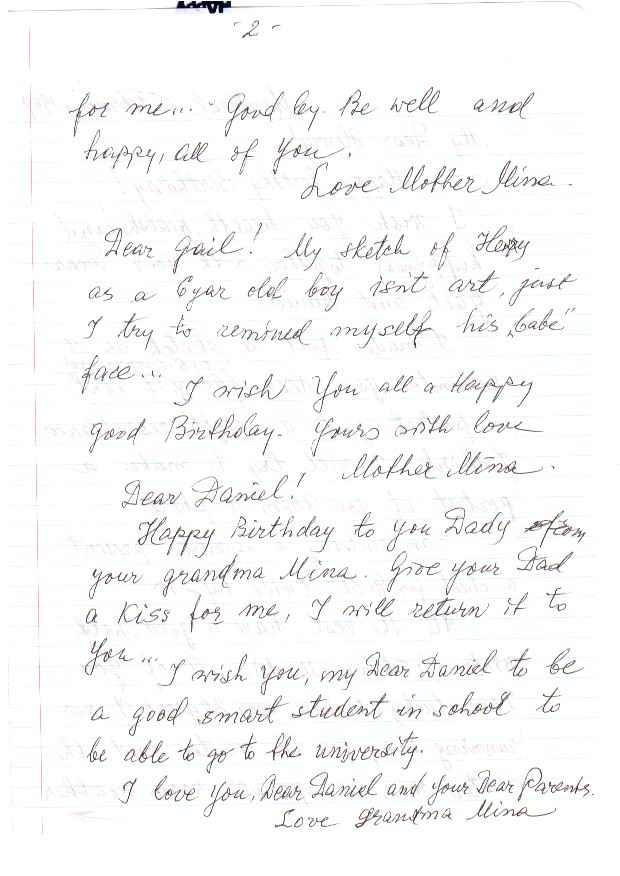 - 2 -
for me... Good by. Be well and
happy, all of You.
Love Mother Mina.
Dear Gail! My sketch of Henry
as a 6 yar old boy isn't art, just
I try to remined myself his „babe"
face...
I wish You all a Happy
good Birthday. Yours with love
Mother Mina.
Dear Daniel!
Happy Birthday to you Dady from
your grandma Mina. Give your Dad
a Kiss for me, I will return it to
You...
I wish you, my Dear Daniel to be
a good smart student in school to
be able to go to the university.
I love You, Dear Daniel and your Dear Parents.
Love grandma Mina